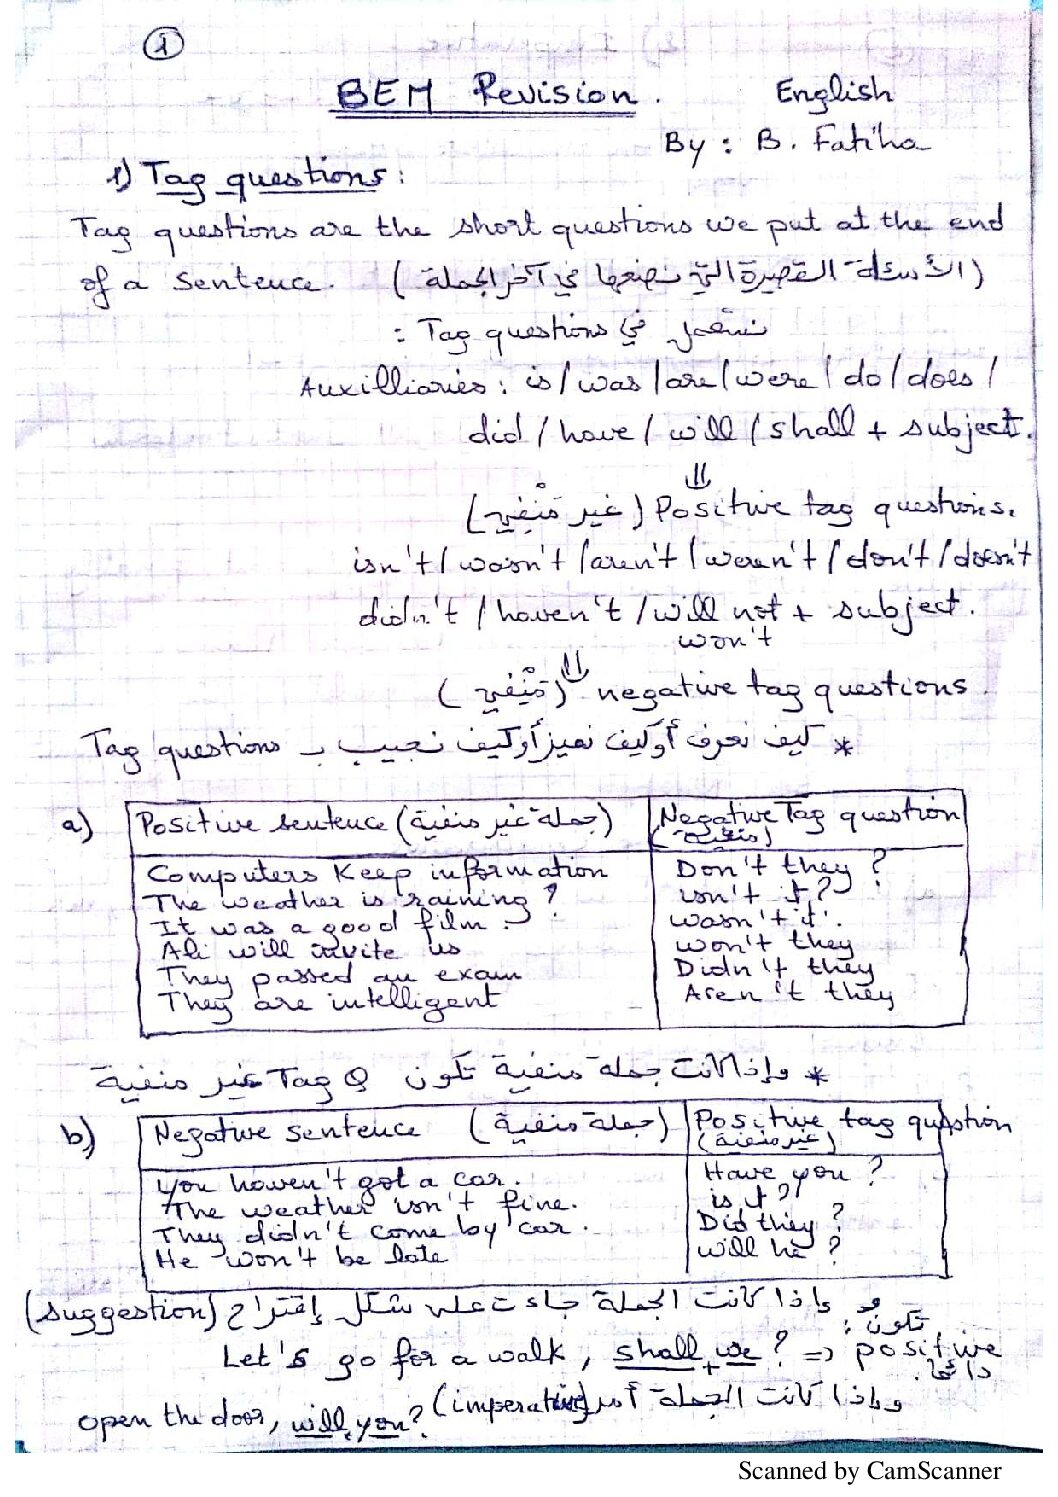 1
BEM Revision. English
By : B. Fatiha
1) Tag questions :
Tag questions are the short questions we put at the end
of a sentence. (الأسئلة القصيرة التي نضعها في آخر الجملة)
نستعمل في Tag questions :
Auxilliaries : is / was / are / were / do / does /
did / have / will / shall + subject.
⇓
(غير مَنْفِي) Positive tag questions.
isn't / wasn't / aren't / weren't / don't / doesn't
didn't / haven't / will not + subject.
won't
⇓
(مَنْفِي) negative tag questions.
* كيف نعرف أو كيف نميز أو كيف نجيب بـ Tag questions
a) Positive sentence (جملة غير منفية) Negative Tag question
(منفية)
Computers keep information Don't they ?
The weather is raining ? isn't it ?
It was a good film. wasn't it.
Ali will invite us won't they
They passed an exam Didn't they
They are intelligent Aren't they
* وإذا كانت جملة منفية تكون Tag Q غير منفية
b) Negative sentence (جملة منفية) Positive tag question
(غير منفية)
You haven't got a car. Have you ?
The weather isn't fine. is it ?
They didn't come by car. Did they ?
He won't be late will he ?
وإذا كانت الجملة جاءت على شكل إقتراح (suggestion)
تكون :
Let's go for a walk, shall + we ? => positive
دائما.
وإذا كانت الجملة أمر (imperative)
open the door, will you ?
Scanned by CamScanner